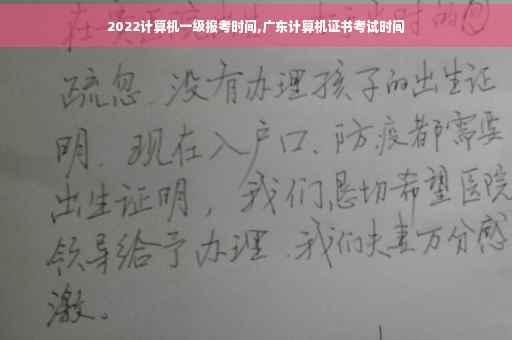 2022计算机一级报考时间,广东计算机证书考试时间
疏忽、没有办理孩子的出生证
明、现在入户口、防疫都需要
出生证明，我们恳切希望医院
领导给予办理、我们夫妻万分感
激。